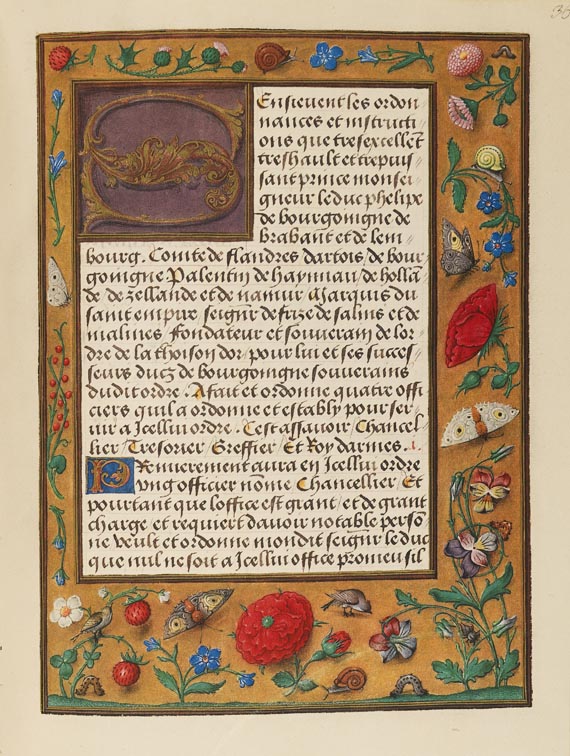 36
Ensievent les ordon
nances et instructi
ons que tresexcellēt
treshault et trepuis
sant prince monsei
gneur le duc phelipe
de bourgoingne de
brabant et de lem
bourg. Comte de flandres dartois de bour
goingne Palentin de haynnau de hollan̄
de de zellande et de namur Marquis du
saint empire seigñr de frize de salins et de
malines fondateur et souverain de lor
dre de la thoison dor pour lui et ses succes
seurs ducz de bourgoingne souverains
dudit ordre. A fait et ordonne quatre offi
ciers quil a ordonne et estably pour ser
uir a Icellui ordre. Cest assavoir Chancel
lier Tresorier Greffier Et Roy darmes.
Premierement aura en Icellui ordre
vng officier nōme Chancellier Et
pourtant que loffice est grant et de grant
charge et requiert davoir notable persō
ne veult et ordonne mondit seigñr le duc
que nul ne soit a Icell office promeu sil